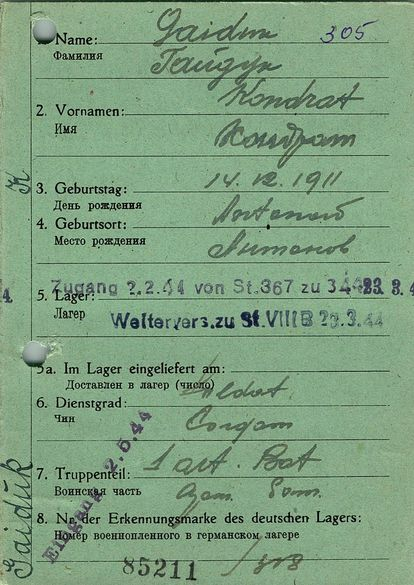 1. Name: Gaiduk 305
Фамилия Гайдук
2. Vornamen: Kondrat
Имя Кондрат
3. Geburtstag: 14.12.1911
День рождения
4. Geburtsort:
Место рождения
Zugang 2.2.44 von St.367 zu 344
23.3.4
4.
5. Lager:
Лагер
Weitervers. zu St. VIII B 23.3.44
5a. Im Lager eingeliefert am:
Доставлен в лагер (число)
6. Dienstgrad: Soldat
Чин Солдат
7. Truppenteil: 1 art. Bat
Воинская часть
8. Nr. der Erkennungsmarke des deutschen Lagers:
Номер военнопленного в германском лагере
85211
K
Gaiduk
Eingang 2.5.44